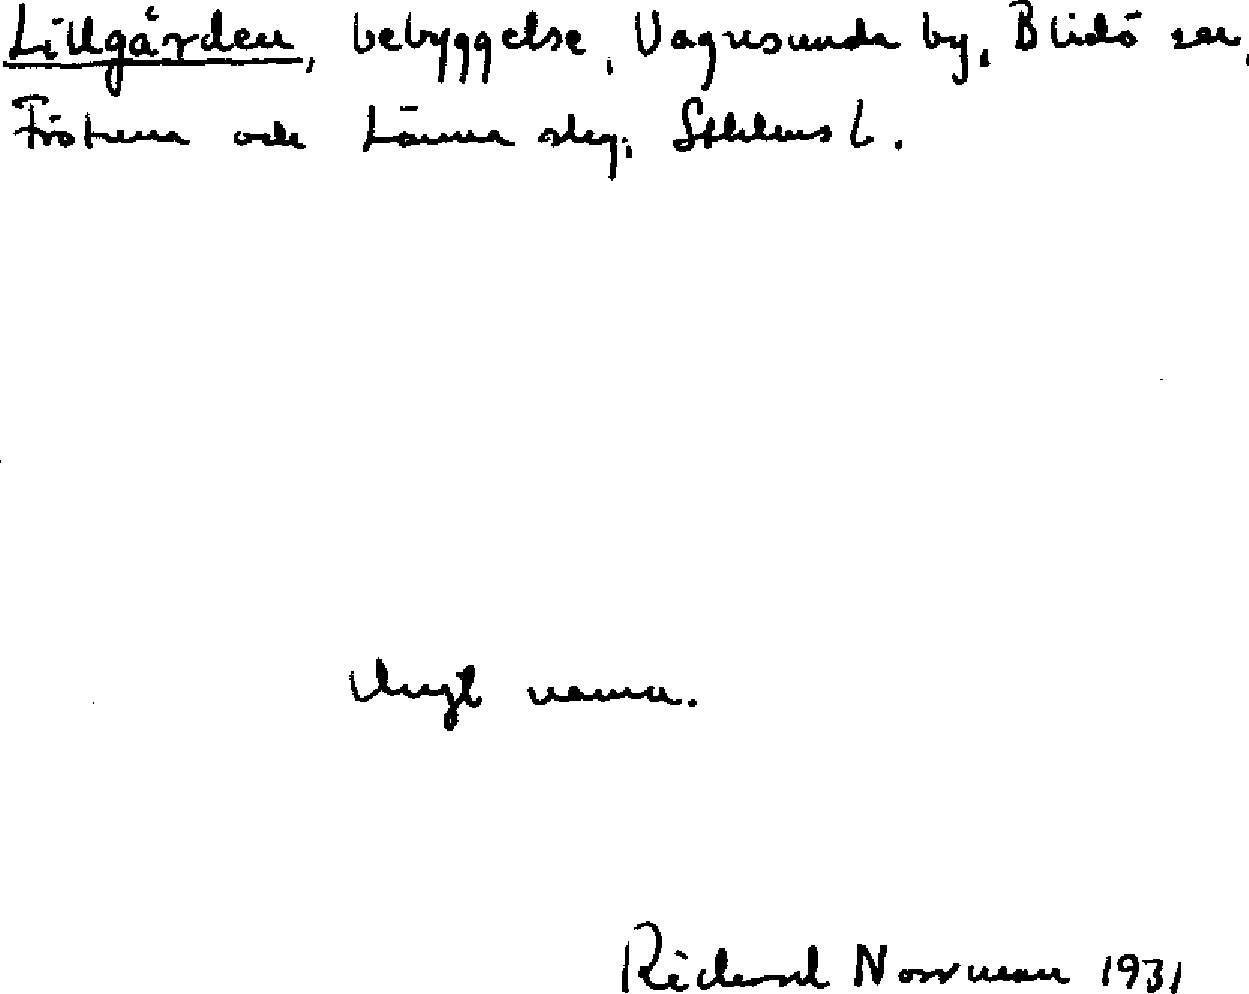 Lillgården, bebyggelse, Vagnsunda by, Blidö sn,
Frötuna och Länna slg, Sthlms l.
Ungt namn.
Richard Norrman 1931